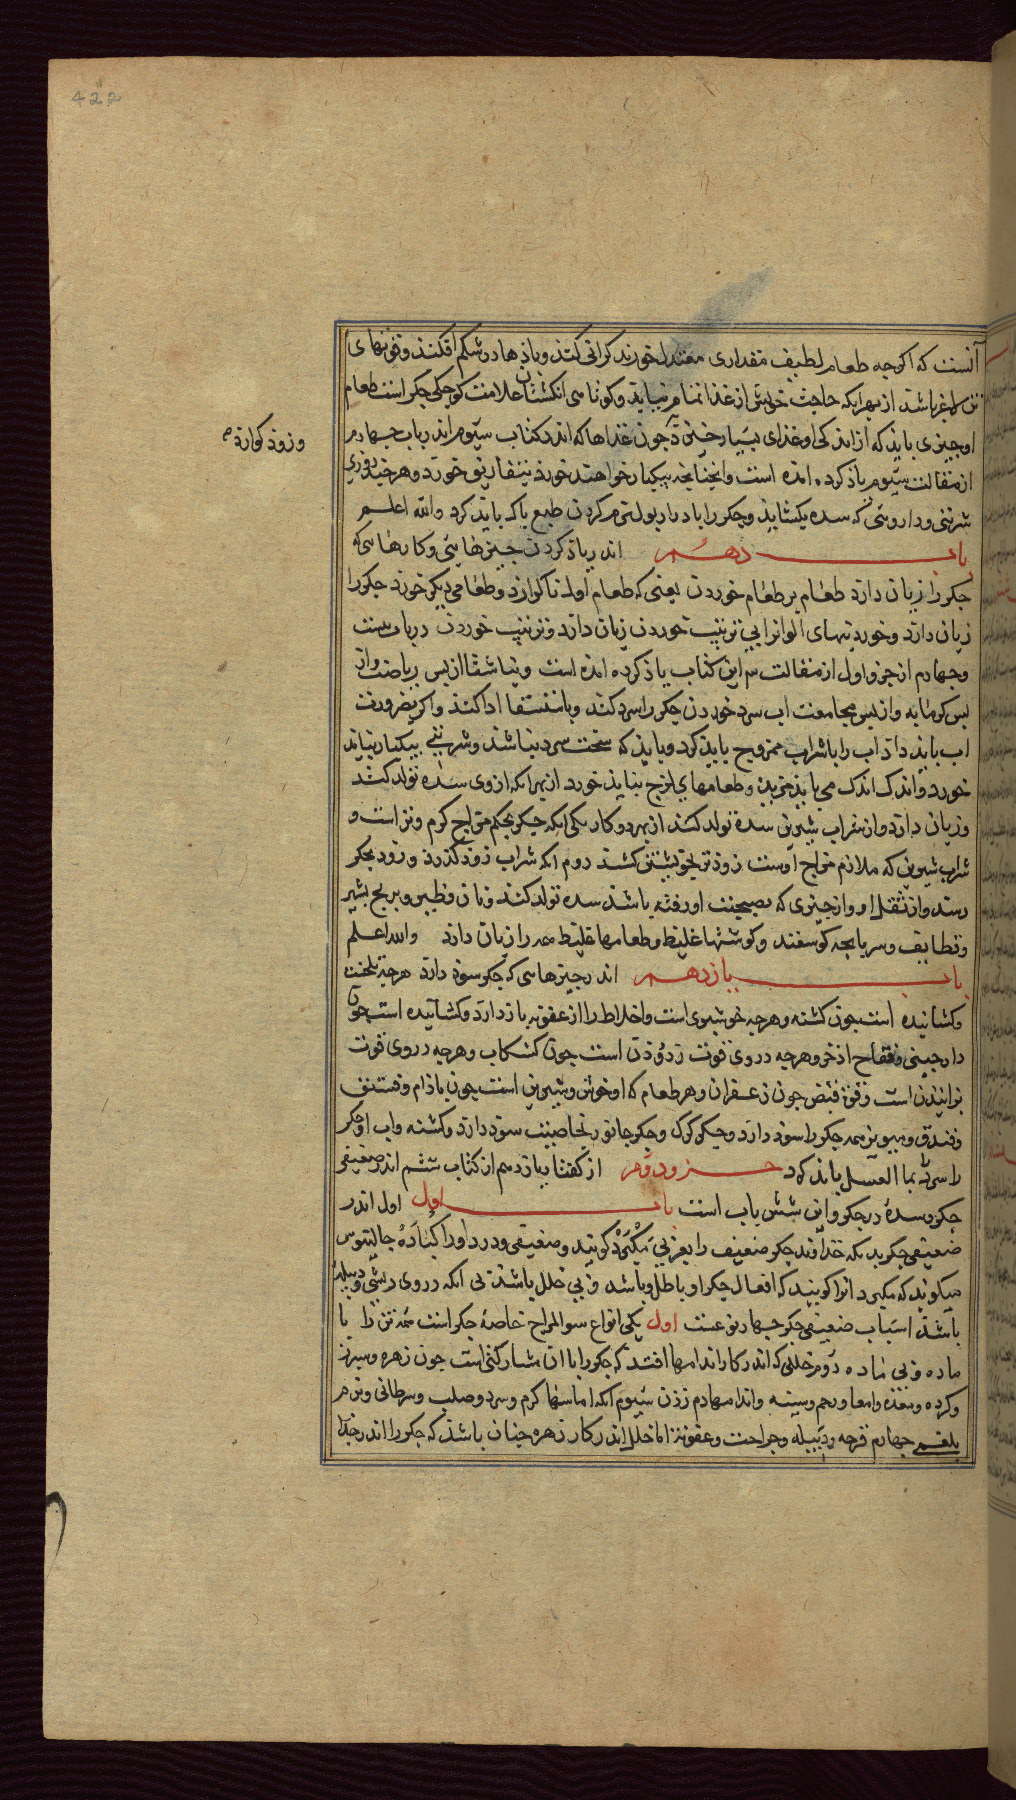 422
آنست که اکرچه طعام لطیف مقداری معتدل خورند کرانی کند و باذها در شکم افکند و قوتهای
تن لاغر باشد از بهر انکه حاجت خویش از غذا تمام نیابد و کوتاهی انکشتان علامت کوچکی جکر است طعام
او چیزی باید که از اندکی او غذای بسیار خیزد چون غذاها که اندر کتاب سیوم اندر باب چهارم
و زوذ کوارد صح
از مقالت سیوم یاذ کرده امده است و انچنانچه بیکبار خواهند خورد بتفاریق خورد و هر چند روزی
شربتی و داروئی که سده بکشاید و جکر را باد رار بول نرم کردن طبع پاک باید کرد والله اعلم
باب دهم اندر یاذ کردن چیزهایی و کارهایی که
جکر را زیان دارد طعام بر طعام خوردن یعنی که طعام اول ناکوارد و طعامی دیکر خورد جکر را
زیان دارد و خوردنیهای الوانرا بی ترتیب خوردن زیان دارد و ترتیب خوردن در باب بیست
و چهارم از جزو اول از مقالت سم این کتاب یاذ کرده امده است و ناشتا از بس ریاضت و از
بس کرمابه و از بس مجامعت اب سرد خوردن جکر را سرد کند و باستسقا ادا کند و اکر بضرورت
اب باید داد اب را با شراب ممزوج باید کرد و باید که سخت سرد نباشد و شربتی بیکبار نباید
خورد و اندک اندک می باید مزید و طعامهای لزج نباید خورد از بهر انکه از وی سده تولد کند
و زیان دارد و از شراب شیرین سده تولد کند از بهر دو کار یکی انکه جکر بحکم مزاج کرم و تر است و
شراب شیرین که ملازم مزاج اوست زوذتر بخویشتن کشد دوم انکه شراب زوذ کذرد و زوذ بجکر
رسد و از ثقل او و از چیزی که بصحبت او رفته باشد سده تولد کند و نان فطیر و برنج بشیر
و قطایف و سر بابچه کوسفند و کوشتها غلیظ و طعامها غلیظ همه را زیان دارد والله اعلم
باب یازدهم اندر چیزهایی که جکر سوذ دارد هرچه تلخست
و کشاینده است چون کشنه و هرچه خوشبوی است و اخلاط را از عفونه باز دارد و کشاینده است چون
دارچینی و فقاح اذخر و هرچه در وی قوت زدودن است چون کشکاب و هرچه در وی قوت
بزانیدن است و قوة قبض چون زعفران و هر طعام که او خوش و شیرین است چون باذام و فستق
و فندق و میویز همه جکر را سوذ دارد و جکر کرک و جکر جانور بخاصیت سوذ دارد و کشنه واب او جکر
را سرد بما العسل پاک کرد جزو دوم از کفتار یازدهم از کتاب ششم اندر ضعیفی
جکر و سدۀ در جکر و این شش باب است باب اول اول اندر
ضعیفی جکر بدانکه خداوند جکر ضعیف را بعربی مکبود کویند و ضعیفی و درد او را کُباد جالینوس
میکوید که مکبود انرا کویند که افعال جکر او باطل و با شده و بی خلل باشد بی انکه در وی ریشی و دبیله
باشد اسباب ضعیفی جکر چهار نوعست اول یکی انواع سوالمزاج خاصۀ جکر است همه تن را با
ماده و بی ماده دوم خللی که اندر کار اندامها افتد که جکر را با ان مشارکتی است چون زهره و سبرز
و کرده و معده و امعا و رحم و سینه و اندامها دم زدن سیوم انکه اماسها کرم و سرد و صلب و سرطانی و نرم
بلغمی چهارم قرحه و دبیله و جراحت و عفونة اما خلل اندر کار زهره چنان باشد که جکر را اندر جذا